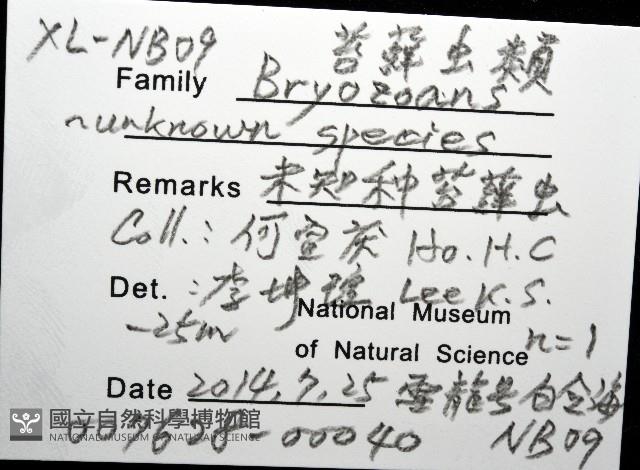 XL-NB09 苔蘚虫類
Family Bryozoans
unknown species
Remarks 未知种苔蘚虫
Coll.: 何宣 Ho.H.C
Det.: 李坤瑄 Lee K.S.
-25m National Museum
of Natural Science n=1
Date 2014.7.25 雲龍号白金海
國立自然科學博物館
NATIONAL MUSEUM OF NATURAL SCIENCE
-00040 NB09